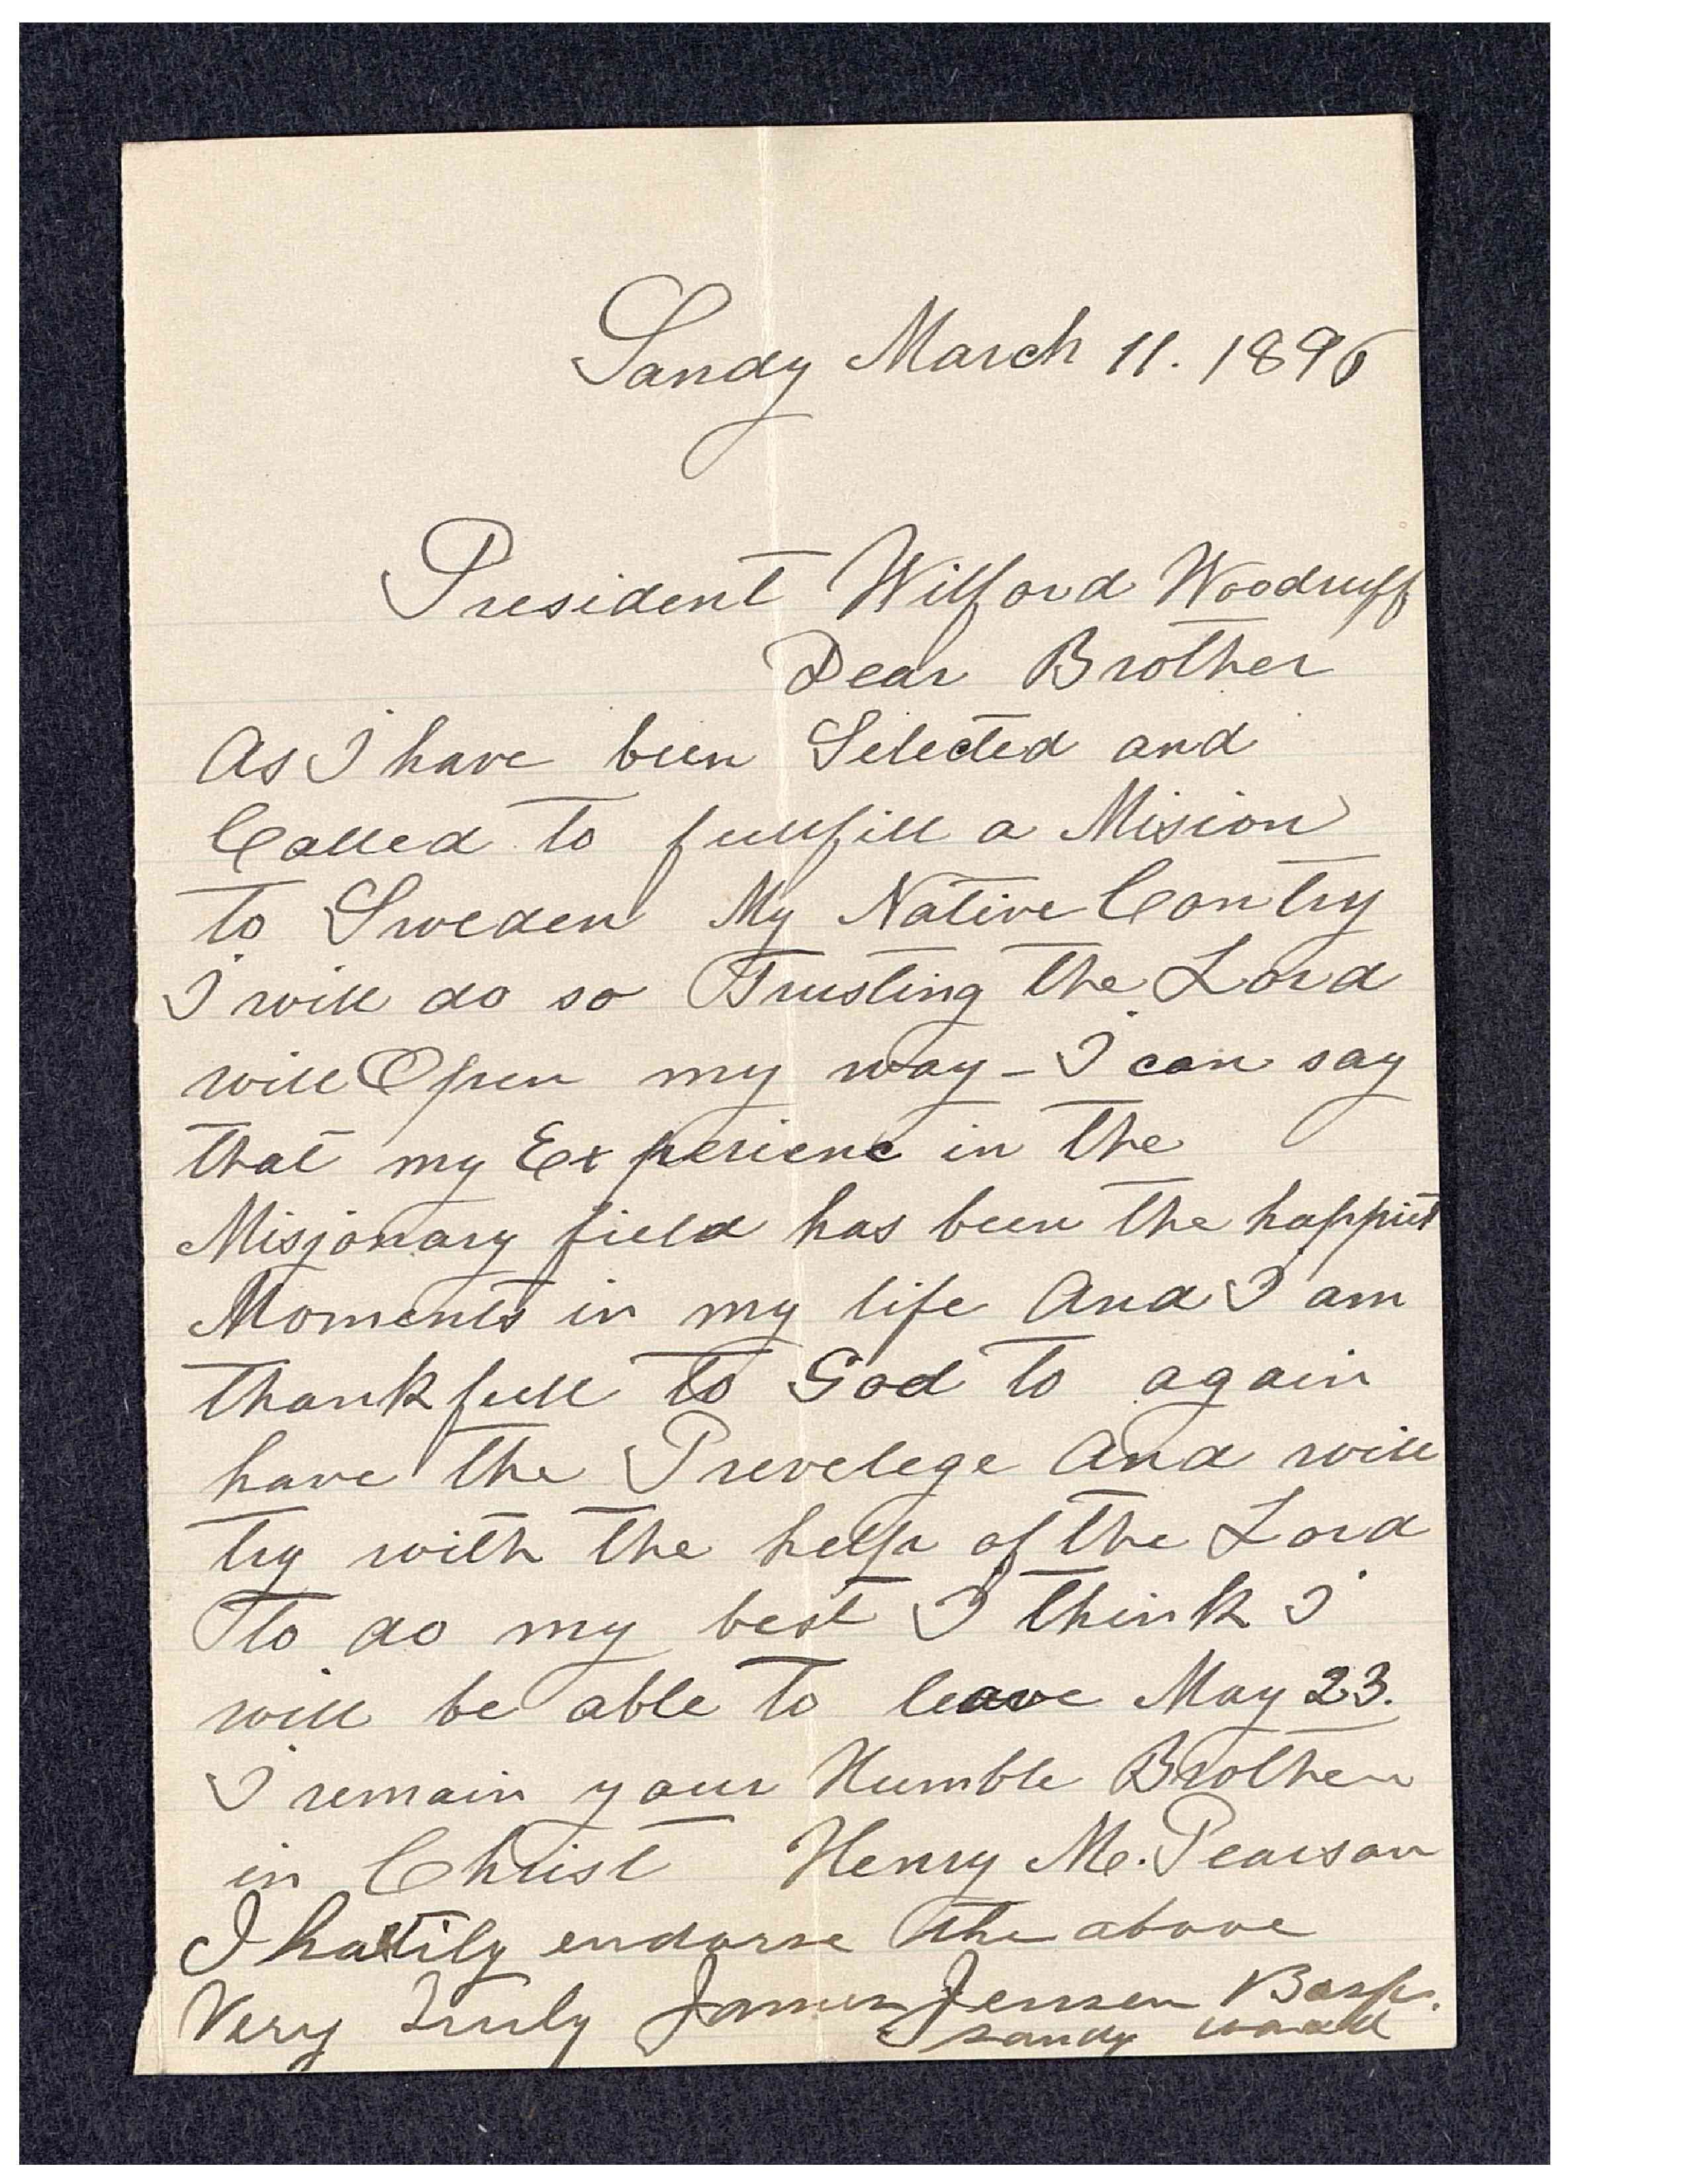 Sandy March 11. 1896
President Wilford Woodruff
Dear Brother
As I have been Selected and
Called to fullfill a Mision
to Sweden My Native Contry
I will do so Trusting the Lord
will Open my way - I can say
that my Experienc in the
Misjonary field has been the happist
Moments in my life And I am
thankfull to God to again
have the Prevelege And will
try with the help of the Lord
To do my best I think I
will be able to leave May 23.
I remain your Humble Brother
in Christ Henry M. Pearson
I hartily endorse the above
Very Truly James Jensen Bp.
Sandy ward